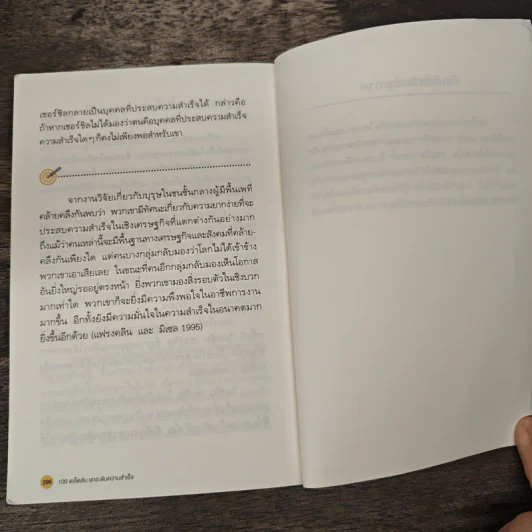 เชอร์ชิลกลายเป็นบุคคลที่ประสบความสำเร็จได้ กล่าวคือ
ถ้าหากเชอร์ชิลไม่ได้มองว่าตนคือบุคคลที่ประสบความสำเร็จ
ความสำเร็จใดๆ ก็คงไม่เพียงพอสำหรับเขา
จากงานวิจัยเกี่ยวกับบุรุษในชนชั้นกลางผู้มีพื้นเพที่
คล้ายคลึงกันพบว่า พวกเขามีทัศนะเกี่ยวกับความยากง่ายที่จะ
ประสบความสำเร็จในเชิงเศรษฐกิจที่แตกต่างกันอย่างมาก
ถึงแม้ว่าคนเหล่านี้จะมีพื้นฐานทางเศรษฐกิจและสังคมที่คล้าย-
คลึงกันเพียงใด แต่คนบางกลุ่มกลับมองว่าโลกไม่ได้เข้าข้าง
พวกเขาเอาเสียเลย ในขณะที่คนอีกกลุ่มกลับมองเห็นโอกาส
อันยิ่งใหญ่รออยู่ตรงหน้า ยิ่งพวกเขามองสิ่งรอบตัวในเชิงบวก
มากเท่าใด พวกเขาก็จะยิ่งมีความพึงพอใจในอาชีพการงาน
มากขึ้น อีกทั้งยังมีความมั่นใจในความสำเร็จในอนาคตมาก
ยิ่งขึ้นอีกด้วย (แฟรงคลิน และ มิเซล 1995)
206 100 เคล็ดลับ ยกระดับความสำเร็จ